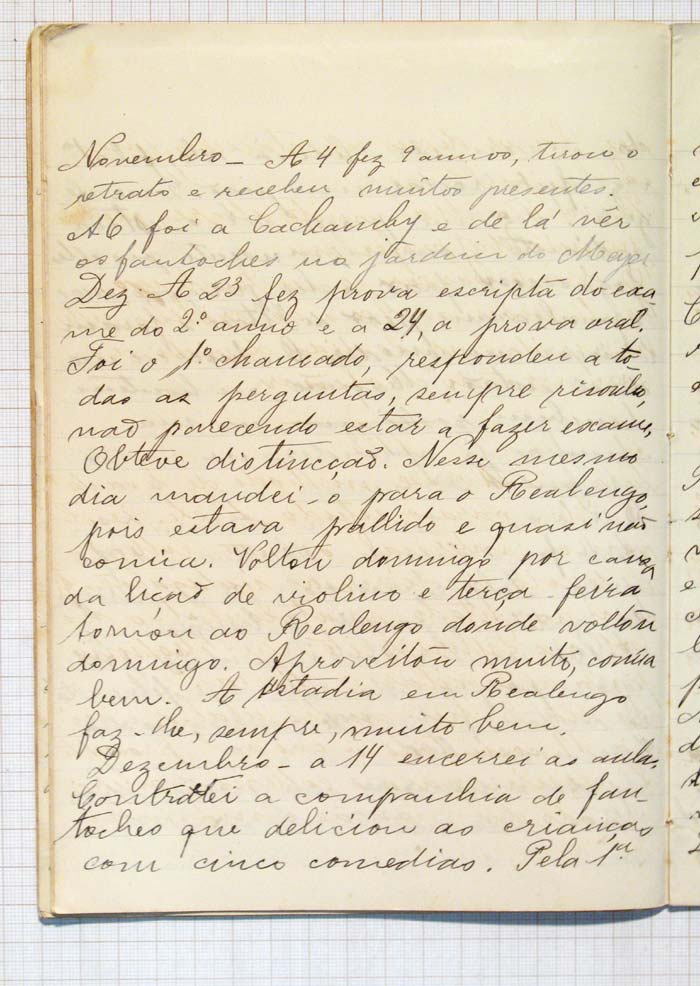 Novembro – A 4 fez 9 annos, tirou o
retrato e recebeu muitos presentes.
A 6 foi a Cachamby e de lá vêr
os fantoches no jardim do Meyer
Dez A 23 fez prova escripta do exa
me do 2º anno e a 24, a prova oral.
Foi o 1º chamado, respondeu a to-
das as perguntas, sempre risonho,
não parecendo estar a fazer exame,
Obteve distincção. Nesse mesmo
dia mandei-o para o Realengo,
pois estava pallido e quasi não
comia. Voltou domingo por causa
da lição de violino e terça-feira
tornou ao Realengo donde voltou
domingo. Aproveitou muito, comia
bem. A estadia em Realengo
faz-lhe, sempre, muito bem.
Dezembro – a 14 encerrei as aulas.
Contratei a companhia de fan-
toches que deliciou as crianças
com cinco comedias. Pela 1ª